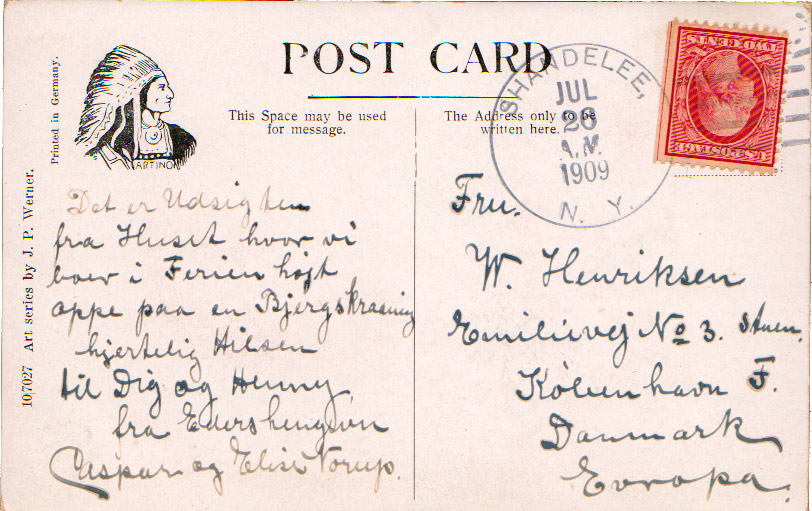 POST CARD
Printed in Germany.
10/7027 Art series by J. P. Werner.
ARTINO
This Space may be used
for message.
The Address only to be
written here.
SHANDELEE,
JUL
26
A.M.
1909
N. Y.
U.S. POSTAGE
TWO CENTS
Det er Udsigten
fra Huset hvor vi
boer i Ferien højt
oppe paa en Bjergskraaning
hjertelig Hilsen
til Dig og Henny
fra Eders hengivn
Caspar og Elise Norup.
Fru.
W. Henriksen
Emilievej No 3. Stuen.
København F.
Danmark
Evropa.